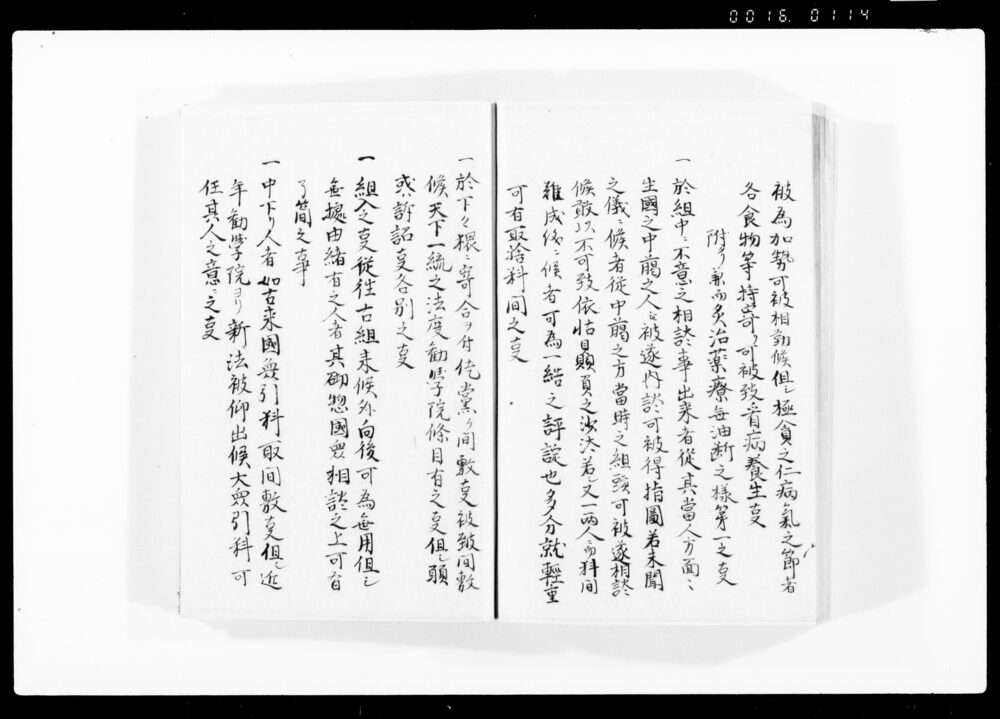 0016.0114
被為加勢可被相勤候但シ極貪之仁病氣之節者
各食物等持寄リ可被致看病養生㕝
附タリ兼而炙治薬療無油断之様第一之㕝
一 於組中ニ不意之相談事出来者從其當人方面ニ
生國之中﨟之人江被遂内談可被得指圖若未聞
之儀ニ候者從中﨟之方當時之組頭可被遂相談
候敢以不可致依怙贔屓之沙汰若シ又一両人而料間
難成後ニ候者可為一結之評諚也多分就輕重
可有取捨料间之㕝
一 於下々猥ニ寄合ヲ付徒黨ケ间敷㕝被致间敷
候天下一統之法度勸学院條目有之㕝但シ頭
或許詔㕝各別之㕝
一 組入之㕝従往古組来候外向後可為無用但シ
無據由緒有之人者其砌惣國衆相談之上可有
了簡之事
一 中下リ人者如古来國衆引料取间敷㕝但シ近
年勸学院ヨリ新法被仰出候大衆引料可
任其人之意ニ之㕝